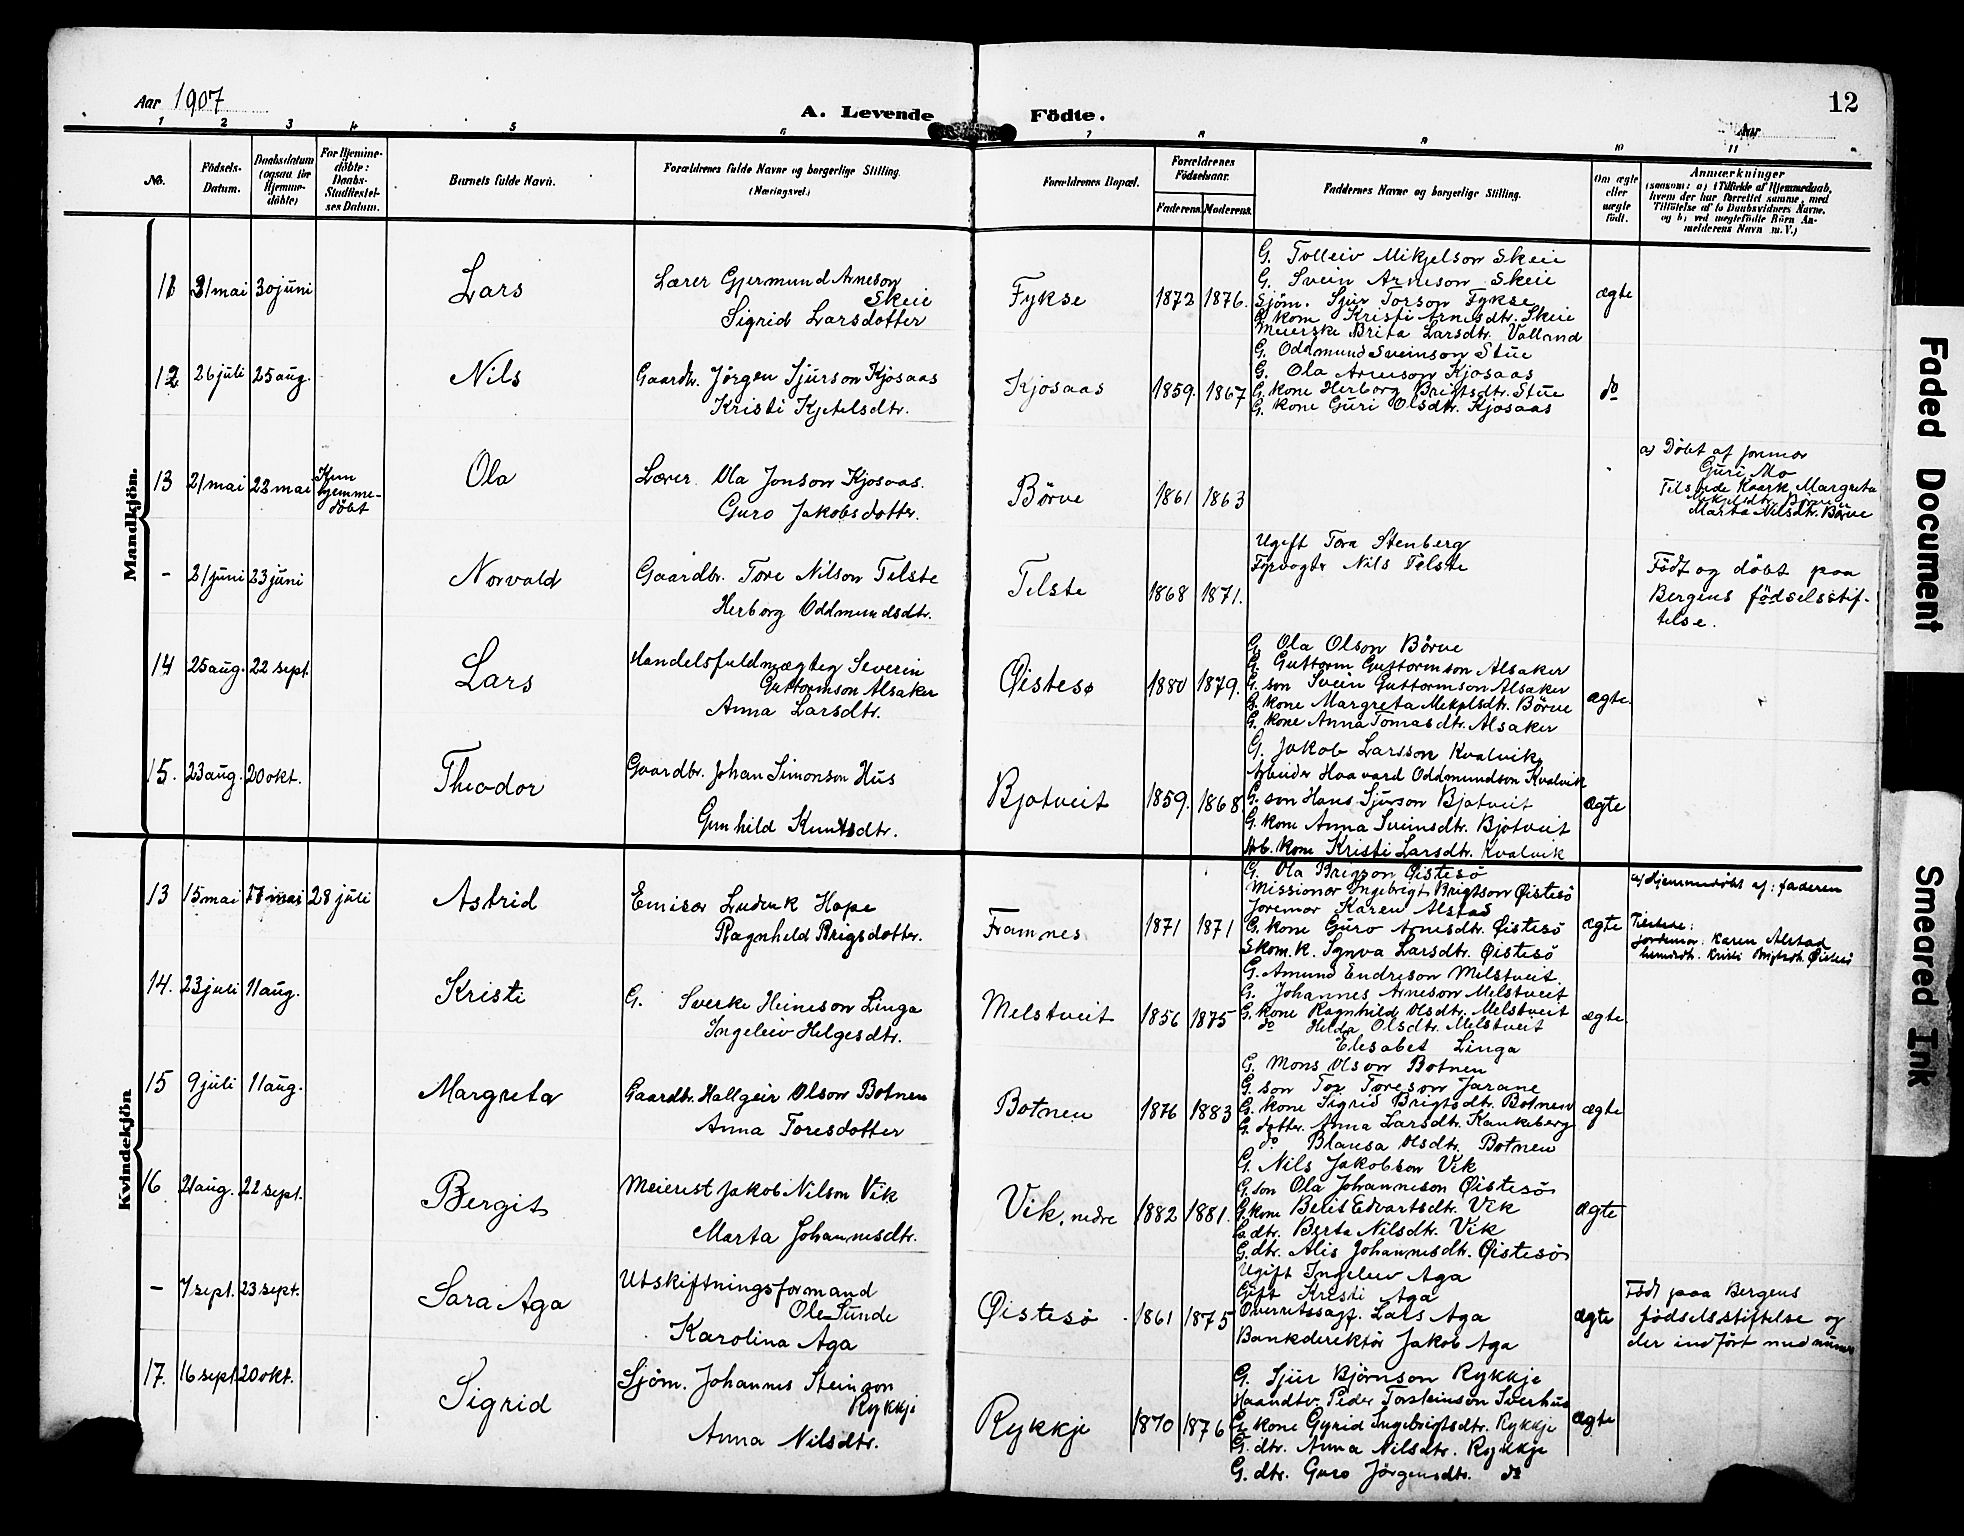 Aar 1907
A. Levende Födte.
12
Aar
1 2 3 4 5 6 7 8 9 10 11
No.
Födsels-Datum.
Daabsdatum (ogsaa for Hjemme-döbte)
For Hjemme-döbte: Daabs-Stadfæstelses Datum.
Barnets fulde Navn.
Forældrenes fulde Navne og borgerlige Stilling. (Næringsvei.)
Forældrenes Bopæl.
Forældrenes Födselsaar.
Faderens. Moderens.
Faddernes Navne og borgerlige Stilling.
Om ægte eller uægte födt.
Anmærkninger
(saasom: a) i Tilfælde af Hjemmedaab, hvem der har forrettet samme, med Tilföielse af to Daabsvidners Navne, og b) ved uægtefödte Börn Anmelderens Navn m. V.)
Mandkjön.
11 31 mai 30 juni Lars
Lærer Gjermund Arneson Skeie
Sigrid Larsdotter
Fykse 1872 1876.
G. Tolleiv Mikjelson Skeie
G. Svein Arneson Skeie
Sjöm. Sjur Torson Fykse
G. kone Kristi Arnesdtr. Skeie
Meierske Brita Larsdtr. Valland
ægte
12 26 juli 25 aug. Nils
Gaardbr. Jörgen Sjurson Kjosaas
Kristi Kjetelsdtr.
Kjosaas 1859. 1867
G. Oddmund Sveinson Stue
G. Ola Arneson Kjosaas
G. kone Herborg Brigtsdtr. Stue
G. kone Guri Olsdtr. Kjosaas
do
13 21 mai 22 mai Kun hjemme-döbt Ola
Lærer Ola Jonson Kjosaas.
Guro Jakobsdotter.
Börve 1861 1863
a) Döbt af jormor
Guri Mo
Tilstede Margreta
Mekjelsdtr. Börve
Marta Nilsdtr. Börve
- 21 juni 23 juni Norvald
Gaardbr. Tore Nilson Telste
Herborg Oddmundsdtr.
Telste 1868 1871.
Ugift Tora Stenberg
Fyrvogter Nils Telste
Födt og döbt paa
Bergens födselsstif-
telse.
14 25 aug. 22 sept. Lars
Handelsfuldmægtig Severin
Guttormson Alsaker
Anna Larsdtr.
Øistesø 1880 1879.
G. Ola Olson Börve
G. Guttorm Guttormson Alsaker
G. son Svein Guttormson Alsaker
G. kone Margreta Mekjelsdtr. Börve
G. kone Anna Tomasdtr. Alsaker
ægte.
15. 23 aug. 20 okt. Theodor
Gaardbr. Johan Simonson Hus
Gunhild Knutsdtr.
Bjotveit 1859. 1868
G. Jakob Larsson Kvalvik
Arbeider Haavard Oddmundson Kvalvik
G. son Hans Sjurson Bjotveit
G. kone Anna Sveinsdtr. Bjotveit
Arb. kone Kristi Larsdtr. Kvalvik
ægte
Kvindekjön
13 15 mai 17 mai 28 juli Astrid
Emisær Ludvik Hope
Ragnheld Brigsdotter.
Framnes 1871 1871
G. Ola Brigson Øistesö
Missionær Ingebrigt Brigtson Øistesö
Joremor Karen Alstad
G. kone Guro Arnesdtr. Øistesö
Skom. k. Synva Larsdtr. Øistesö
ægte
a) Hjemmedöbt af: faderen
Tilstede:
Jordemor: Karen Alstad
Kristi Brigtsdtr. Øistesö
14. 23 juli 11 aug. Kristi
G. Sverke Heineson Linga
Ingeleiv Helgesdtr.
Melstveit 1856 1875
G. Amund Endreson Melstveit
G. Johannes Arneson Melstveit
G. kone Ragnhild Olsdtr. Melstveit
do Helda Olsdtr. Melstveit
Elesabet Linga
ægte
15 9 juli 11 aug. Margreta
Gaardbr. Hallgeir Olson Botnen
Anna Toresdotter
Botnen 1876 1883
G. Mons Olson Botnen
G. son Tor Toreson Jarane
G. kone Sigrid Brigtsdtr. Botnen
G. dotter. Anna Larsdtr. Kankeberg
do Blansa Olsdtr. Botnen
ægte
16 21 aug. 22 sept. Bergit
Meierist Jakob Nilson Vik
Marta Johannesdtr.
Vik, nedre 1882 1881.
G. Nils Jakobson Vik
G. son Ola Johanneson Øistesö
G. kone Berit Edvartsdtr. Vik
G. dtr. Berta Nilsdtr. Vik
G. dtr. Alis Johannesdtr. Øistesö
ægte
- 7 sept. 23 sept. Sara Aga
Utskiftningsformand
Ole Sunde
Karolina Aga
Øistesö 1861 1875
Ugift Ingeleiv Aga
Gift Kristi Aga
Overretssagf. Lars Aga
Bankdirektör Jakob Aga
ægte
Födt paa Bergens
födselsstiftelse og
der indfört med numer
17. 16 sept. 20 okt. Sigrid
Sjöm. Johannes Steinson
Rykkje
Anna Nilsdtr.
Rykkje 1870 1876
G. Sjur Björnson Rykkje
Haandtv. Peder Torsteinson Sverhus
G. kone Gyrid Ingebrigtsdtr. Rykkje
G. dtr. Anna Nilsdtr. Rykkje
G. dtr. Guro Jörgensdtr. do
ægte
Faded Document
Smeared Ink